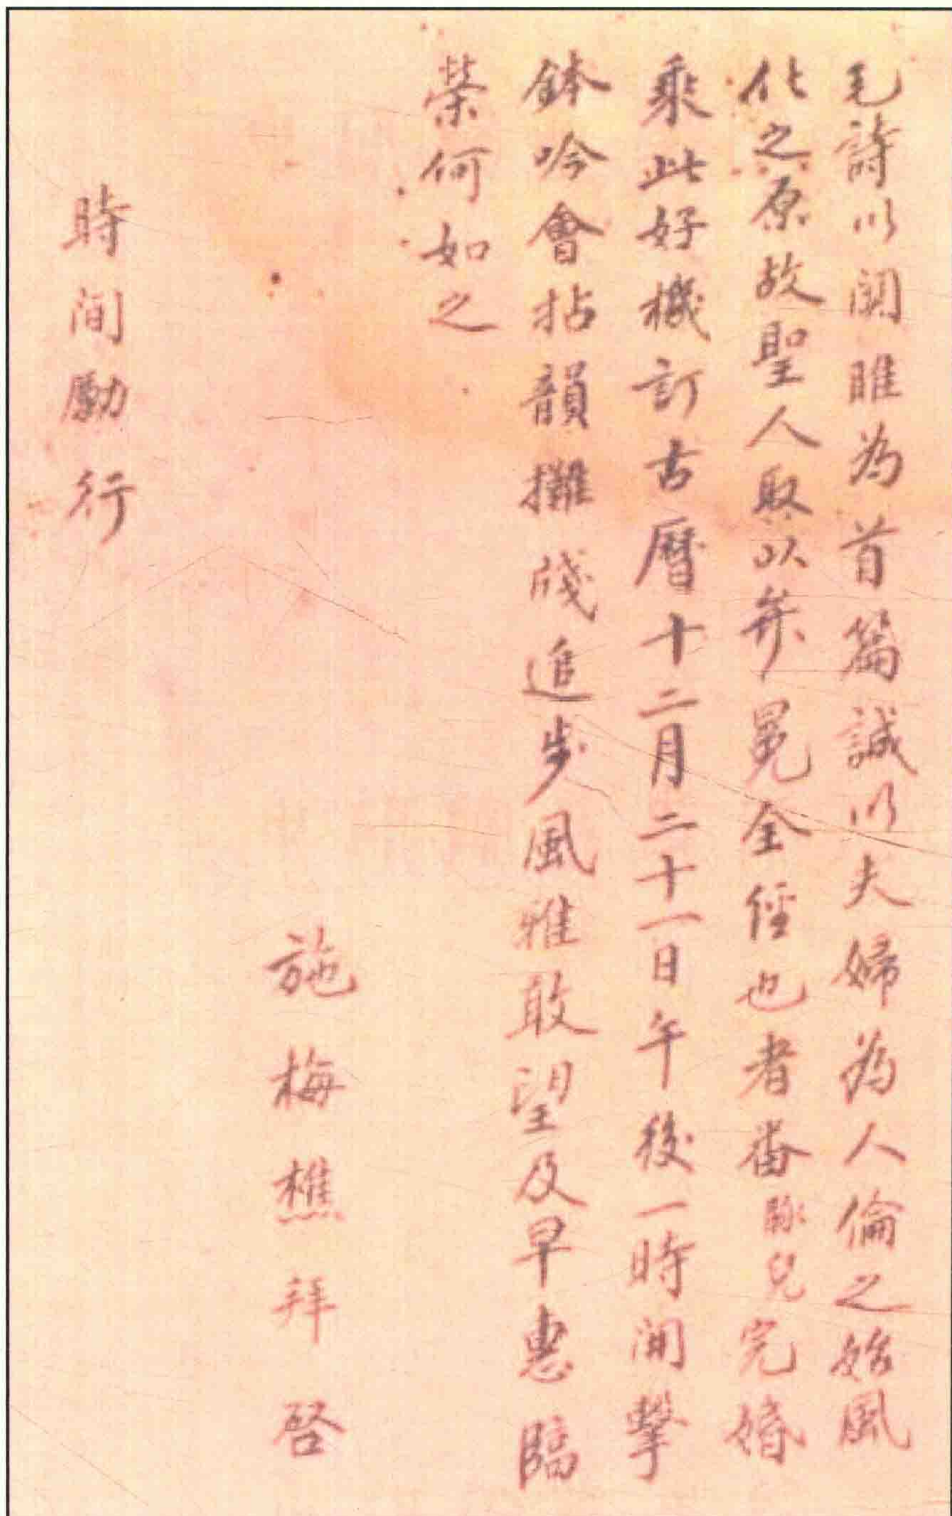 毛詩以関雎為首篇誠以夫婦為人倫之始風
化之原故聖人取以弁冕全經也者番豚兒完婚
乘此好機訂古曆十二月二十一日午後一時開擊
鉢吟會拈韻攤牋追步風雅敢望及早惠臨
榮何如之
施梅樵拜啓
時間勵行